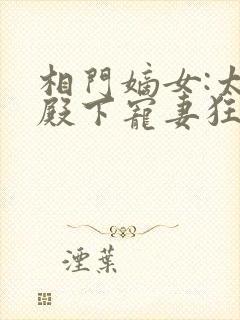 相門嫡女:太
殿下寵妻狂
湮葉